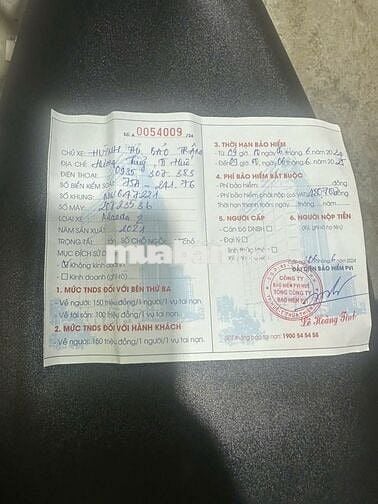 Số A 0054009 /24
CHỦ XE: HUỲNH
ĐỊA CHỈ: Hương Thủy, T. Huế
ĐIỆN THOẠI: 0985 307 383
SỐ BIỂN KIỂM SOÁT: 75A - 211.76
SỐ KHUNG:
SỐ MÁY:
LOẠI XE: Mazda 2
NĂM SẢN XUẤT: 2021
TRỌNG TẢI: SỐ CHỖ NGỒI:
MỤC ĐÍCH SỬ
Không kinh doanh
Kinh doanh (ghi rõ)
1. MỨC TNDS ĐỐI VỚI BÊN THỨ BA
- Về người: 150 triệu đồng/1 người/1 vụ tai nạn.
- Về tài sản: 100 triệu đồng/1 vụ tai nạn.
2. MỨC TNDS ĐỐI VỚI HÀNH KHÁCH
Về người: 150 triệu đồng/1 người/1 vụ tai nạn.
3. THỜI HẠN BẢO HIỂM
- Từ: 09 giờ, ngày 06 tháng 6 năm 2024
- Đến: 09 giờ, ngày 06 tháng 6 năm 2025
4. PHÍ BẢO HIỂM BẮT BUỘC
- Phí bảo hiểm: đồng
- Phí bảo hiểm phải nộp (có VAT):
Thời hạn thanh toán: ngày tháng năm
5. NGƯỜI CẤP
Cán bộ DNBH
Đại lý
6. NGƯỜI NỘP TIỀN
(Ký, ghi rõ họ tên)
ĐẠI DIỆN BẢO HIỂM PVI
CÔNG TY
BẢO HIỂM PVI HUẾ
TỔNG CÔNG TY
BẢO HIỂM PVI
Lê Hoàng
Số thông báo tai nạn: 1900 54 54 58